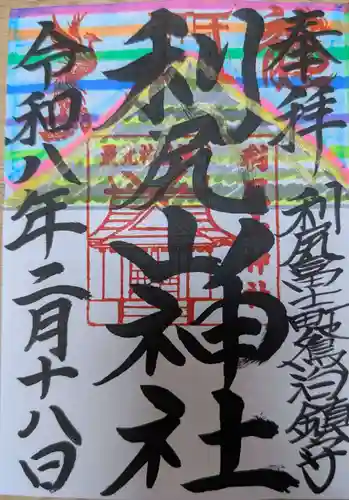 奉拝
利尻富士町鴛泊鎮守
利尻山神社
令和八年二月十八日